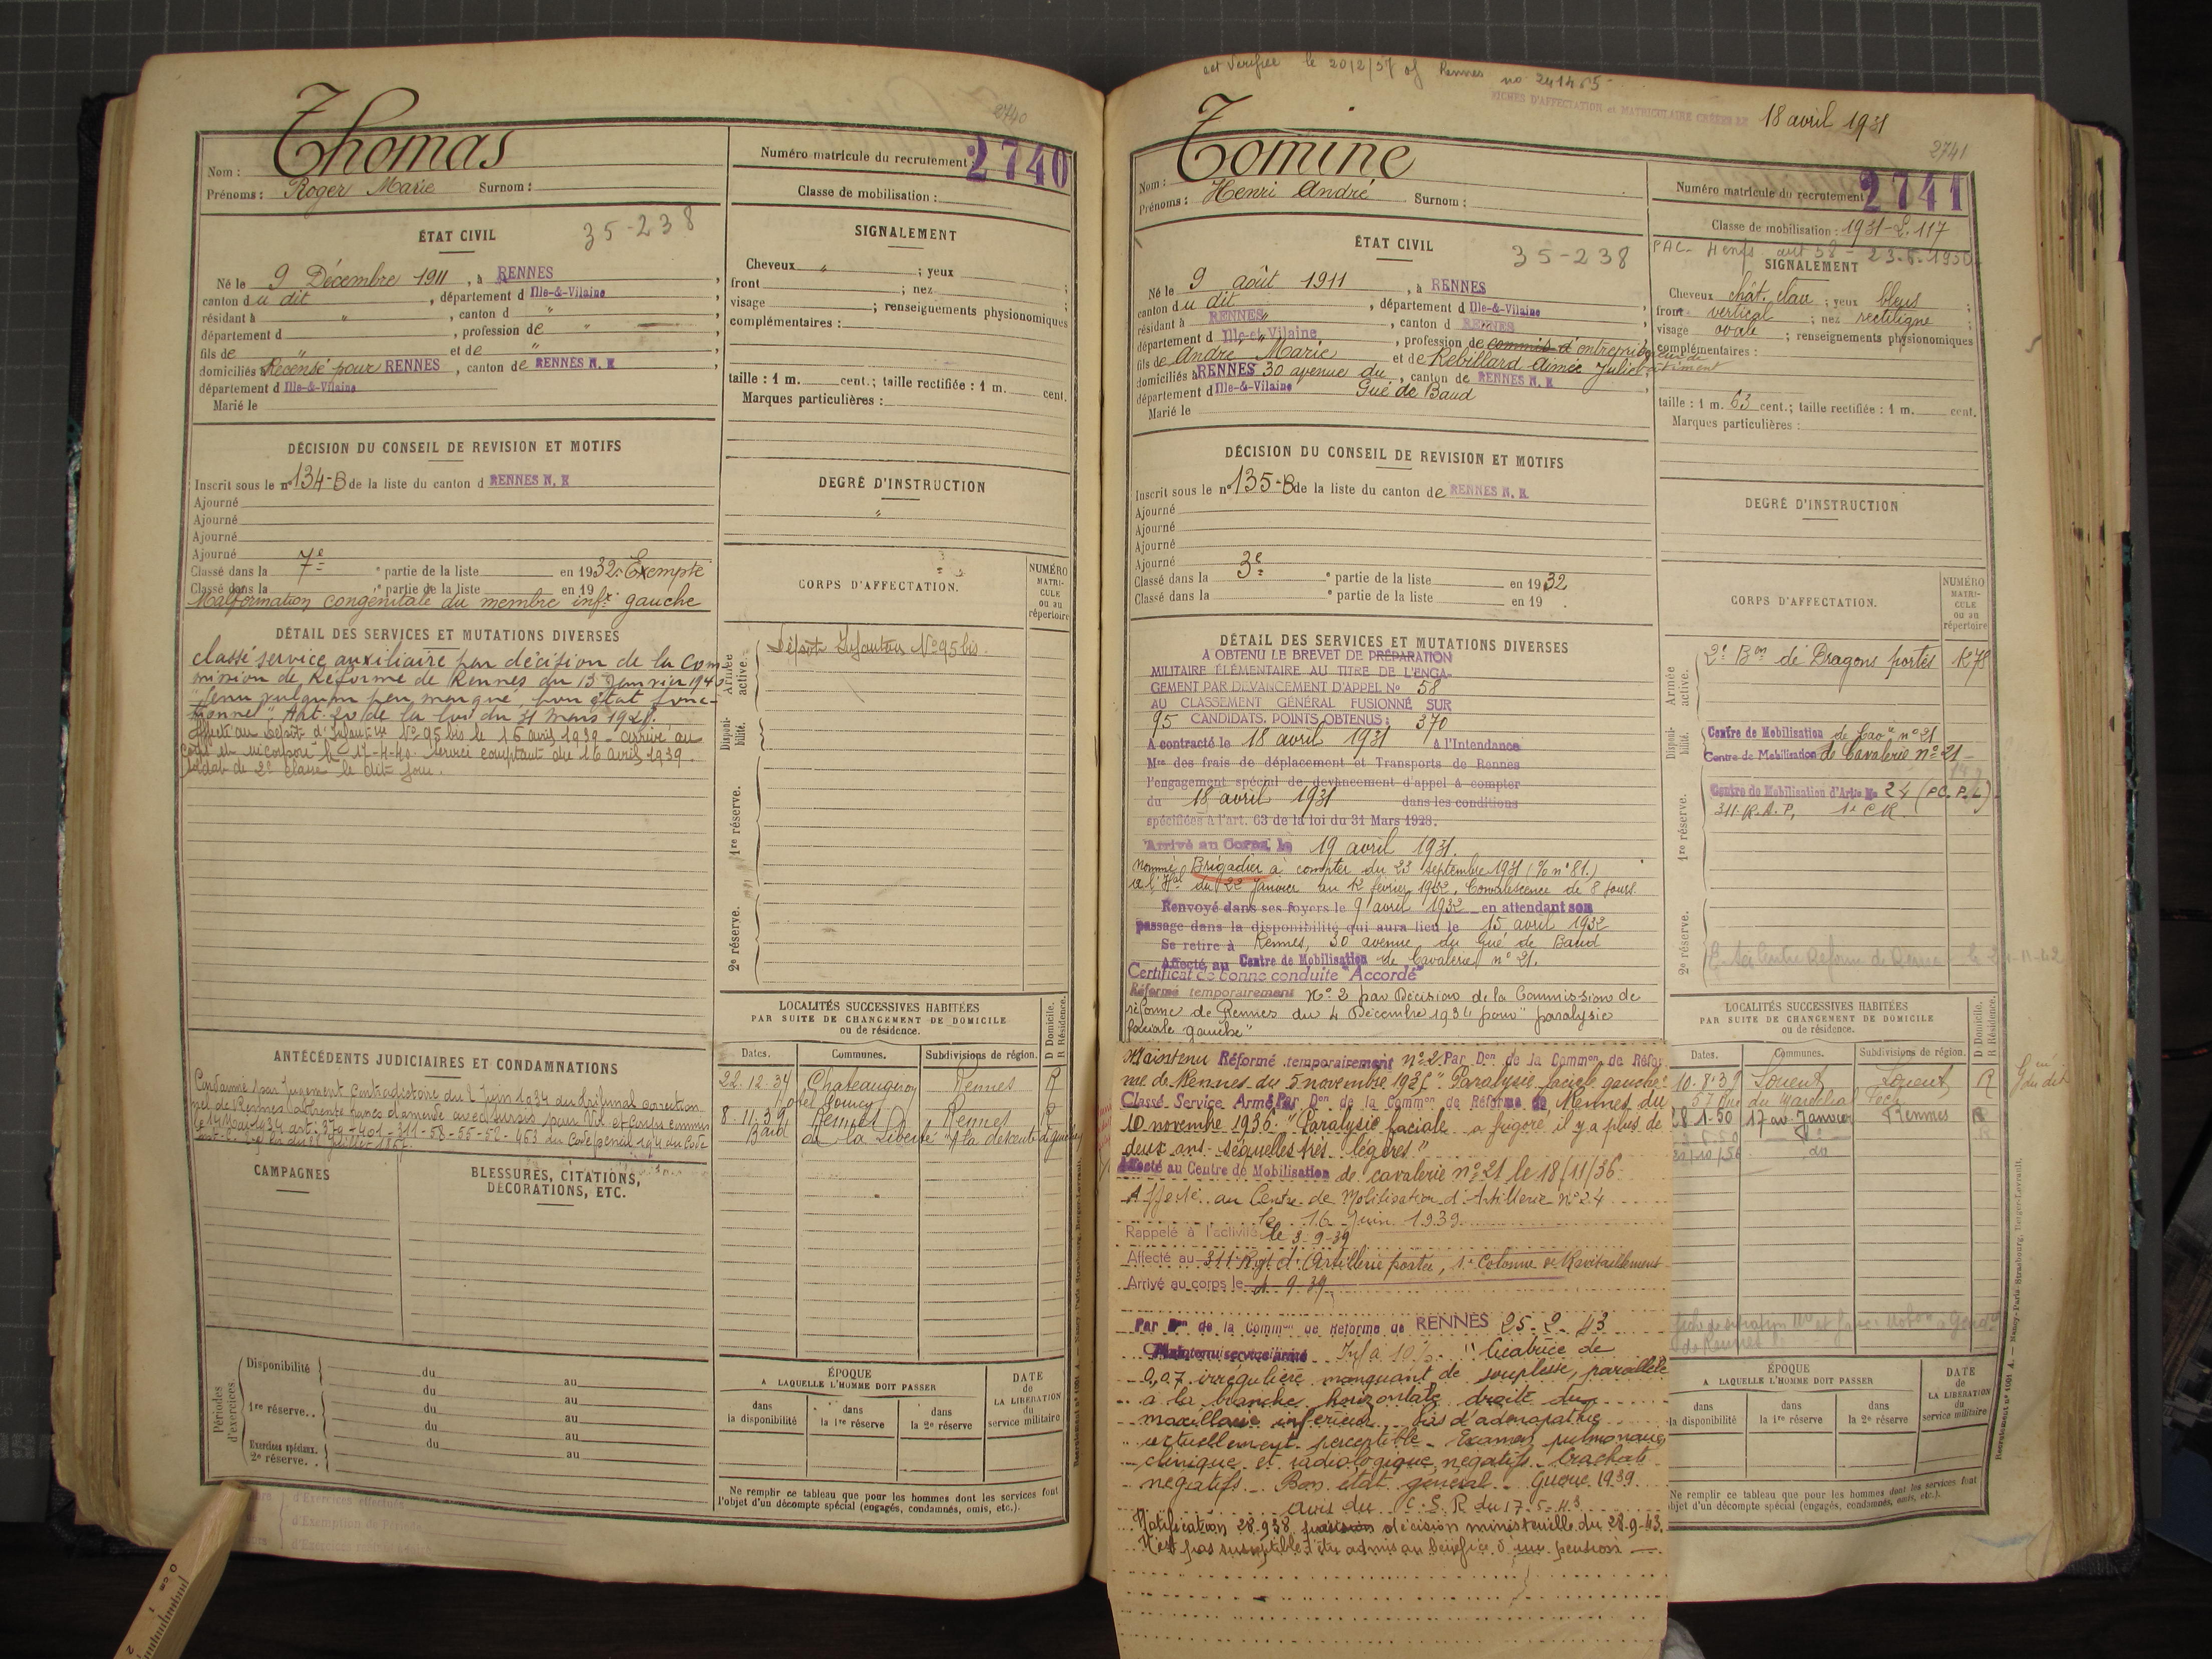 2740
Thomas
Nom :
Numéro matricule du recrutement 2740
Prénoms : Roger Marie Surnom :
Classe de mobilisation :
ÉTAT CIVIL 35-238
Né le 9 Décembre 1911, à RENNES,
canton du dit, département d Ille-&-Vilaine,
résidant à ", canton d ",
département d , profession de ",
fils de " et de ",
domiciliés Recensé pour RENNES, canton de RENNES N. E
département d Ille-&-Vilaine
Marié le
SIGNALEMENT
Cheveux " ; yeux ;
front ; nez ;
visage ; renseignements physionomiques
complémentaires :
taille : 1 m. cent.; taille rectifiée : 1 m. cent.
Marques particulières :
DÉCISION DU CONSEIL DE REVISION ET MOTIFS
Inscrit sous le n° 134-B de la liste du canton d RENNES N. E
Ajourné
Ajourné
Ajourné
Ajourné
Classé dans la 7e partie de la liste en 1932. Exempté
Classé dans la ° partie de la liste en 19
Malformation congénitale du membre infr gauche
DEGRÉ D'INSTRUCTION
"
DÉTAIL DES SERVICES ET MUTATIONS DIVERSES
classé service auxiliaire par décision de la Com
mission de Réforme de Rennes du 13 Janvier 194
peu marqué, bon état fonc-
tionnel". Art. 20 de la loi du 31 mars 1928.
Affecté au Dépôt d'Infanterie N° 95 bis le 16 avril 1939 - arrivé au
corps et incorporé le 17-4-40. Service comptant du 16 avril 1939.
Soldat de 2e classe le dit jour.
CORPS D'AFFECTATION.
NUMÉRO
MATRI-
CULE
ou au
répertoire
Armée
active.
Dépôt Infanterie N° 95 bis.
Disponi-
bilité.
1re réserve.
2e réserve.
LOCALITÉS SUCCESSIVES HABITÉES
PAR SUITE DE CHANGEMENT DE DOMICILE
ou de résidence.
D Domicile.
R Résidence.
Dates. Communes. Subdivisions de région.
22-12-34 Chateaugiron Rennes R
Hotel
8-11-39 Rennes Rennes R
Bard de la Liberté
ANTÉCÉDENTS JUDICIAIRES ET CONDAMNATIONS
Condamné par Jugement Contradictoire du 2 Juin 1934 du Tribunal correction
nel de Rennes à trente francs d'amende avec sursis pour Vol
le 14 Mai 1934 art. 379-401-311-58-55-52-463 du Code pénal 194 du Code
CAMPAGNES
BLESSURES, CITATIONS,
DÉCORATIONS, ETC.
Périodes
d'exercices
Disponibilité du au
1re réserve.. du au
du au
du au
Exercices spéciaux.
2e réserve.. du au
ÉPOQUE
A LAQUELLE L'HOMME DOIT PASSER
dans
la disponibilité
dans
la 1re réserve
dans
la 2e réserve
DATE
de
LA LIBÉRATION
du
service militaire
Ne remplir ce tableau que pour les hommes dont les services font
l'objet d'un décompte spécial (engagés, condamnés, omis, etc.).
d'Exercices effectués
d'Exemption de Période
Rennes no 241465
FICHES D'AFFECTATION et MATRICULAIRE CRÉÉES LE 18 avril 1931
2741
Tomine
Nom :
Numéro matricule du recrutement 2741
Prénoms : Henri André Surnom :
Classe de mobilisation : 1931-L. 117
PAC- 4 enfs art 58 - 23.6.1950
ÉTAT CIVIL 35-238
Né le 9 août 1911, à RENNES
canton du dit, département d Ille-&-Vilaine,
résidant à RENNES, canton d RENNES
département d Ille-et-Vilaine, profession de commis d'entreprise
fils de André Marie et de Rebillard Aimée Julie
domiciliés à RENNES 30 avenue du, canton de RENNES N. E
département d Ille-&-Vilaine Gué de Baud
Marié le
SIGNALEMENT
Cheveux chât. clair ; yeux bleus ;
front vertical ; nez rectiligne ;
visage ovale ; renseignements physionomiques
complémentaires :
taille : 1 m. 63 cent.; taille rectifiée : 1 m. cent.
Marques particulières :
DÉCISION DU CONSEIL DE REVISION ET MOTIFS
Inscrit sous le n° 135-B de la liste du canton de RENNES N. E.
Ajourné
Ajourné
Ajourné
Ajourné
Classé dans la 3e ° partie de la liste en 1932
Classé dans la ° partie de la liste en 19 .
DEGRÉ D'INSTRUCTION
DÉTAIL DES SERVICES ET MUTATIONS DIVERSES
A OBTENU LE BREVET DE PRÉPARATION
MILITAIRE ÉLÉMENTAIRE AU TITRE DE L'ENGA-
GEMENT PAR DEVANCEMENT D'APPEL N° 58
AU CLASSEMENT GÉNÉRAL FUSIONNÉ SUR
95 CANDIDATS. POINTS OBTENUS : 370
A contracté le 18 avril 1931 à l'Intendance
Mre des frais de déplacement et Transports de Rennes
l'engagement spécial de devancement d'appel à compter
du 18 avril 1931 dans les conditions
spécifiées à l'art. 63 de la loi du 31 Mars 1928.
Arrivé au Corps le 19 avril 1931.
Nommé Brigadier à compter du 23 Septembre 1931 (% n° 81.)
à l'Hal du 22 Janvier au 12 février 1932, Convalescence de 8 jours.
Renvoyé dans ses foyers le 9 avril 1932 en attendant son
passage dans la disponibilité qui aura lieu le 15 avril 1932
Se retire à Rennes, 30 avenue du Gué de Baud
Affecté au Centre de Mobilisation de Cavalerie n° 21.
Certificat de bonne conduite "Accordé"
Réformé temporairement N° 2 par Décision de la Commission de
réforme de Rennes du 4 Décembre 1934 pour "paralysie
faciale gauche"
Maintenu Réformé temporairement n° 2 Par Don de la Common de Réfor
me de Rennes du 5 novembre 1935 "Paralysie faciale gauche"
Classé Service Armé Par Don de la Common de Réforme de Rennes du
10 novembre 1936. "Paralysie faciale a frigore, il y a plus de
deux ans - séquelles très légères."
Affecté au Centre de Mobilisation de cavalerie n° 21 le 18/11/36.
Affecté au Centre de Mobilisation d'Artillerie n° 24
le 16 Juin 1939.
Rappelé à l'activité le 3-9-39
Affecté au 311 Rgt d'Artillerie portée, 1e Colonne de Ravitaillement
Arrivé au corps le 4.9.39
Par Don de la Common de Réforme de RENNES 25-2-43
Maintenu service armé Inf à 10% "Cicatrice de
0,07 irrégulière manquant de souplesse, parallèle
à la branche horizontale droite du
maxillaire inférieur. Pas d'adénopathie
actuellement perceptible. Examen pulmonaire
clinique et radiologique négatif. Crachats
négatifs. Bon état général. Guerre 1939.
avis du C.S.R du 17-5-43
Notification 28.938 décision ministérielle du 28-9-43.
N'est pas susceptible d'être admis au bénéfice d'une pension
CORPS D'AFFECTATION.
NUMÉRO
MATRI-
CULE
ou au
répertoire
Armée
active.
2e Bon de Dragons portés K78
Disponi-
bilité.
Centre de Mobilisation de Cavie n° 21
Centre de Mobilisation de Cavalerie n° 21
1re réserve.
Centre de Mobilisation d'Artie No 24 (P.C.P.L)
311. R.A.P. 1e C R.
2e réserve.
LOCALITÉS SUCCESSIVES HABITÉES
PAR SUITE DE CHANGEMENT DE DOMICILE
ou de résidence.
D Domicile.
R Résidence.
Dates. Communes. Subdivisions de région.
10-8-39 Lorient Lorient R
57 Rue du Maréchal Foch
28-1-50 17 av. Janvier Rennes R
21/10/56 do
ÉPOQUE
A LAQUELLE L'HOMME DOIT PASSER
dans
la disponibilité
dans
la 1re réserve
dans
la 2e réserve
DATE
de
LA LIBÉRATION
du
service militaire
Ne remplir ce tableau que pour les hommes dont les services font
objet d'un décompte spécial (engagés, condamnés, omis, etc.).
Recrutement n° 1001 A. — Nancy-Paris-Strasbourg, Berger-Levrault.